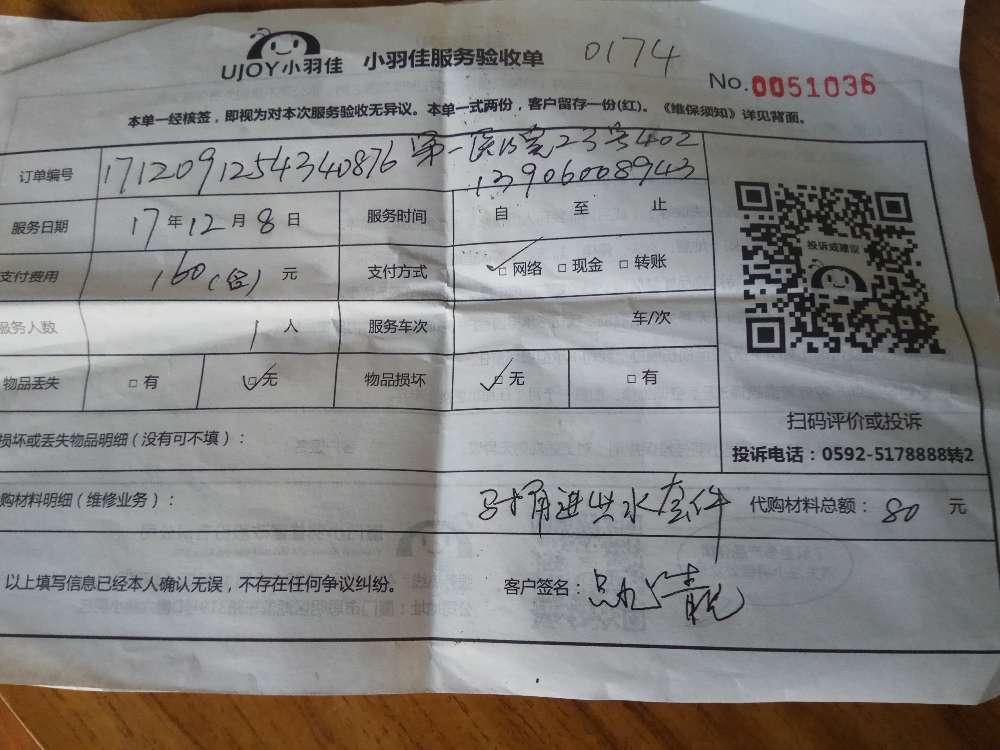 UJOY小羽佳 小羽佳服务验收单 0174
No.0051036
本单一经核签，即视为对本次服务验收无异议。本单一式两份，客户留存一份(红)。《维保须知》详见背面。
订单编号 1712091254340876 第一医院23号402
13906008943
服务日期 17年12月8日 服务时间 自 至 止
支付费用 160(含)元 支付方式 ✓□网络 □现金 □转账
服务人数 1人 服务车次 车/次
物品丢失 □有 ☑无 物品损坏 ☑无 □有
投诉或建议
扫码评价或投诉
投诉电话：0592-5178888转2
损坏或丢失物品明细（没有可不填）：
购材料明细（维修业务）： 马桶进水套件 代购材料总额：80元
以上填写信息已经本人确认无误，不存在任何争议纠纷。 客户签名：